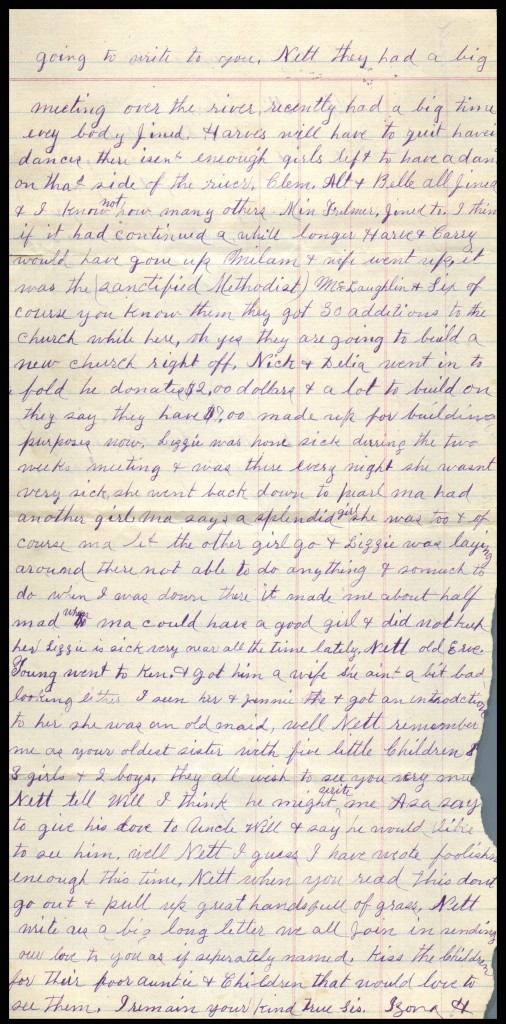 going to write to you. Nett they had a big
meeting over the river, recently had a big time
evey body Jined. Harves will have to quit havei
dances there isent eneough girls left to have a dan
on that side of the river. Clem. Alt & Belle all Jined
& I know not how many others. Min Jined to. I thin
if it had continued a while longer Harve & Carry
would have gone up Milam & wife went up, it
was the (sanctified Methodist) McLaughlin & Six of
course you know them they got 30 additions to the
church while here, oh yes they are going to build a
new church right off. Nick & Delia went in to
fold he donates $2,00 dollars & a lot to build on
they say they have $7.00 made up for building
purposes now. Lizzie was home sick durring the two
weeks meeting & was there every night she wasnt
very sick, she went back down to pearl ma had
another girl ma says a splendid girl she was too & of
course ma let the other girl go & Lizzie was laying
around there not able to do anything & somuch to
do when I was down there it made me about half
mad when ma could have a good girl & did not keep
her Lizzie is sick very near all the time lately. Nett old
Young went to Ken. & got him a wife she aint a bit bad
looking either I seen her & Jennie & got an introdction
to her she was an old maid, well Nett remember
me as your oldest sister with five little Children
3 girls & 2 boys. they all wish to see you very mu
Nett tell Will I think he might write me Asa say
to give his love to Uncle Will & say he would like
to see him. well Nett I guess I have wrote foolishn
eneough this time, Nett when you read this dont
go out & pull up great handsfull of grass. Nett
write us a big long letter we all Join in sending
our love to you as if seperately named. Kiss the Children
for their poor auntie & Children that would love to
see them. I remain your kind true Sis. Izona &